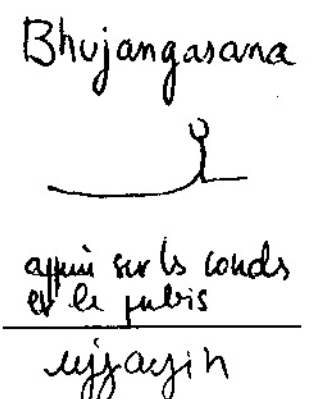 Bhujangasana
appui sur les couds
et le pubis
ujjayin